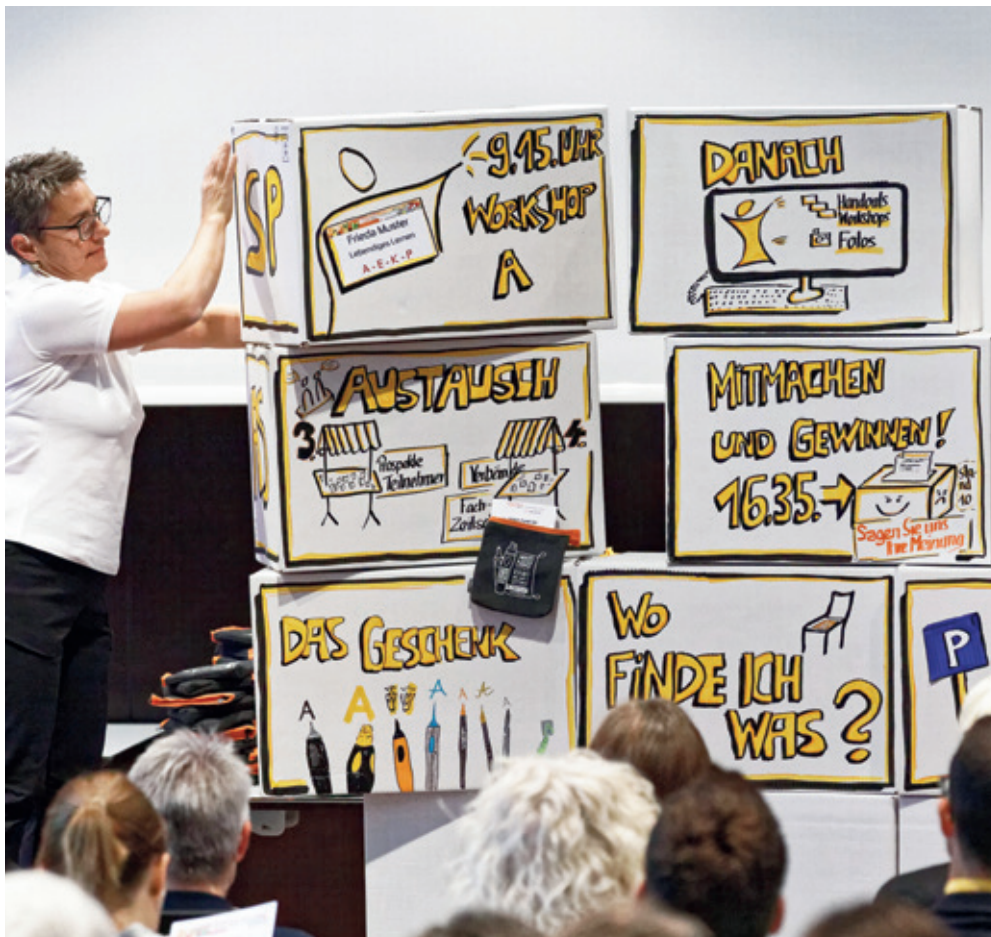 SP
9.15. UHR
WORKSHOP
A
Frieda Muster
Lebendiges Lernen
A-E-K-P
DANACH
Handouts
Workshops
Fotos
AUSTAUSCH
3.
4.
Prospekte
Teilnehmer
Verbände
Fach-
MITMACHEN
UND GEWINNEN!
16.35.
Sagen Sie uns
Ihre Meinung
DAS GESCHENK
A A A A A A
WO
FINDE ICH
WAS?
P